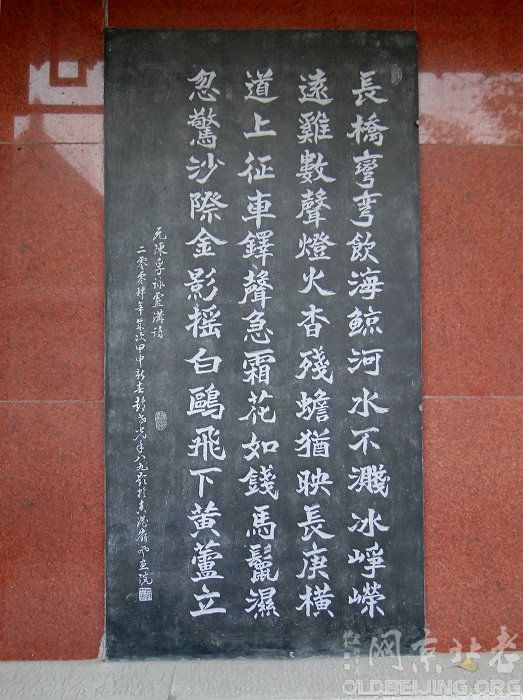 長橋彎彎飲海鯨河水不濺冰崢嶸
遠雞數聲燈火杳殘蟾猶映長庚橫
道上征車鐸聲急霜花如錢馬鬣濕
忽驚沙際金影摇白鷗飛下黄蘆立
元陳孚詠盧溝詩
二零零肆年歲次甲申新春
八九
畫院
老北京网
OLDBEIJING.ORG